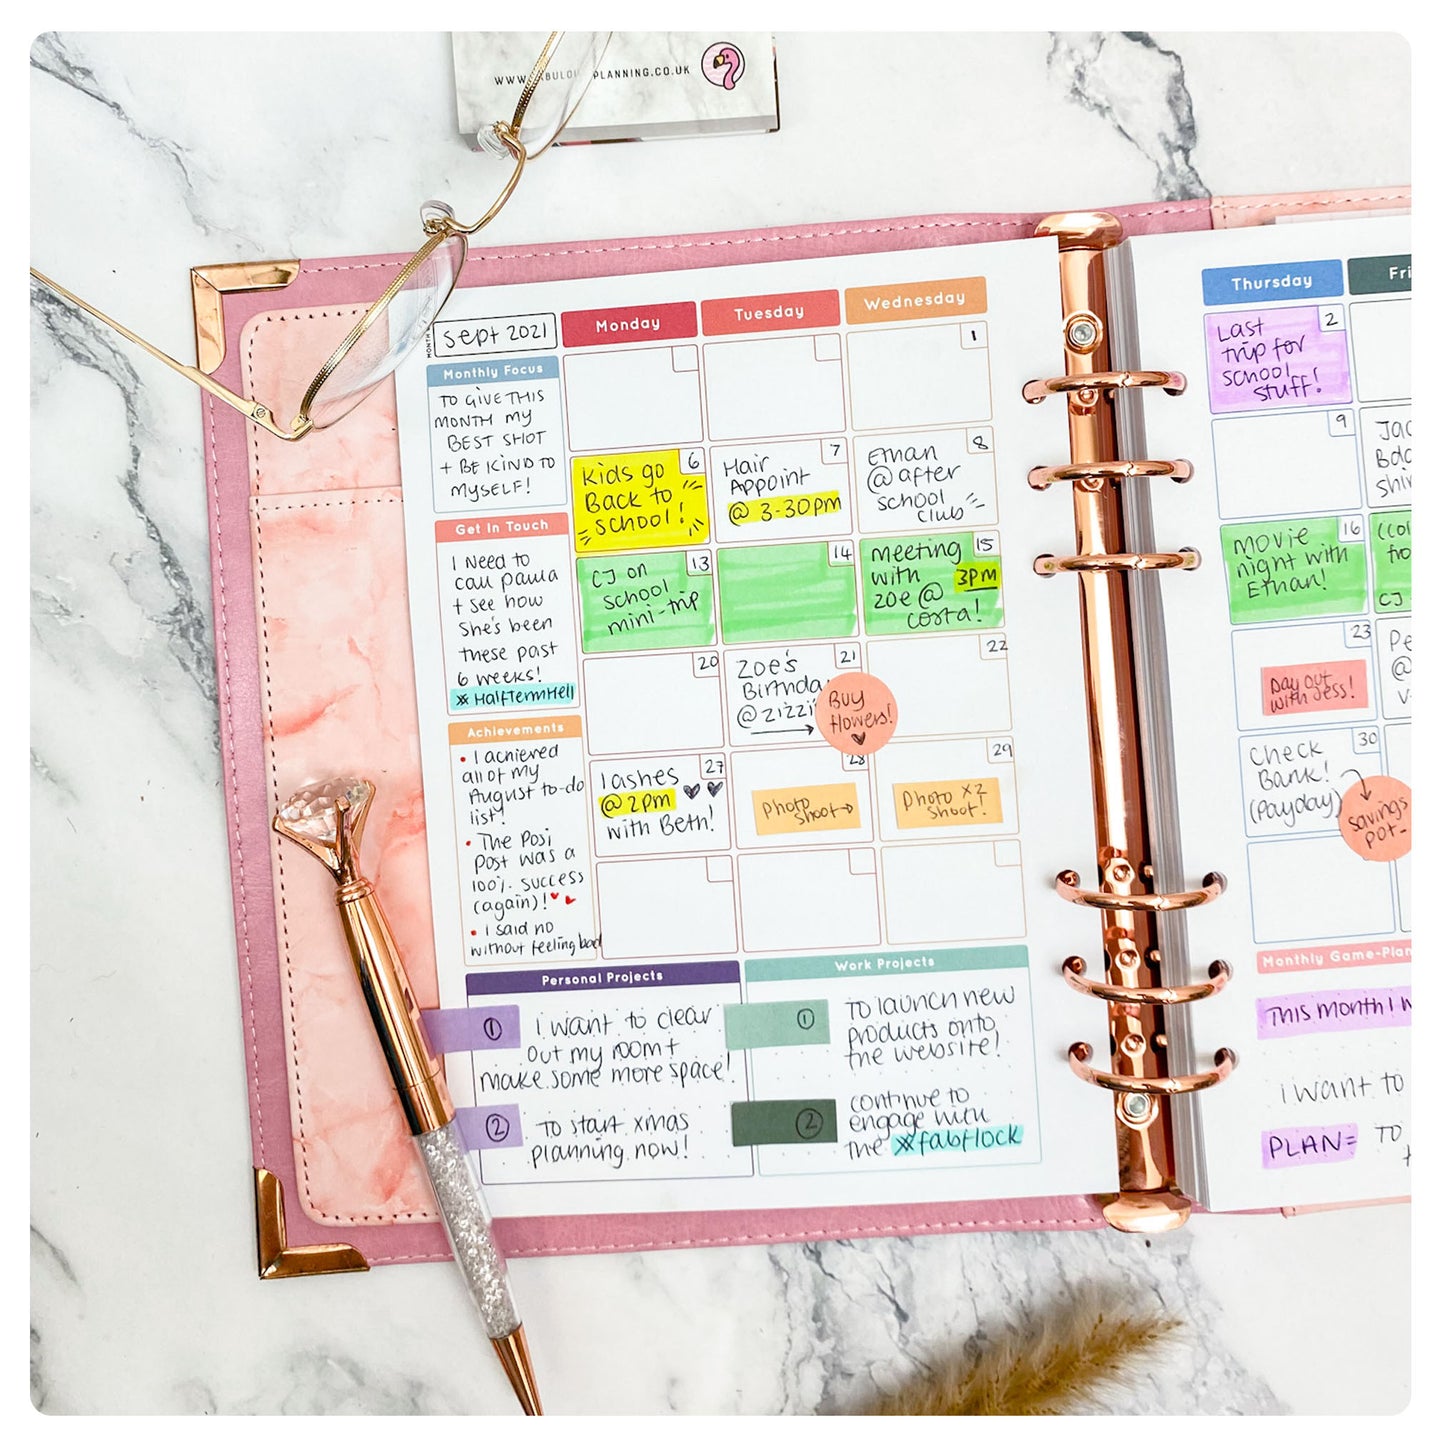 PLANNING.CO.UK
Sept 2021
Monday
Tuesday
Wednesday
Thursday
Monthly Focus
TO GIVE THIS
MONTH MY
BEST SHOT
+ BE KIND TO
MYSELF!
Get In Touch
I Need to
call paula
+ see how
She's been
these past
6 weeks!
#HalfTermHell
Achievements
• I achieved
all of my
August to-do
list!
• The Posi
Post was a
100% success
(again)!
• I said no
without feeling bad
1
2
Last
trip for
school
stuff!
6
Kids go
Back to
school!
7
Hair
Appoint
@ 3-30pm
8
Ethan
@ after
school
club
9
13
CJ on
school
mini-trip
14
15
meeting
with 3PM
zoe @
costa!
16
movie
night with
Ethan!
CJ
20
21
Zoe's
Birthda
@ zizzi
Buy
flowers!
22
23
Day out
with Jess!
27
lashes
@ 2pm
with Beth!
28
Photo
shoot
29
Photo x2
shoot!
30
Check
Bank!
(Payday)
savings
pot-
Personal Projects
1
i want to clear
out my room +
make some more space!
2
To start xmas
planning now!
Work Projects
1
To launch new
products onto
the website!
2
continue to
engage with
the #fabflock
Monthly Game-Plan
This month I w
i want to
PLAN= TO